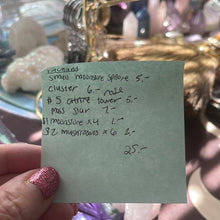 small moonstone sphere 5,-
cluster 6,- rose
$5 citrine tower 5,-
moss star 7,-
$1 moonstone x4 1,-
$2 mushrooms x6 2,-
25,-